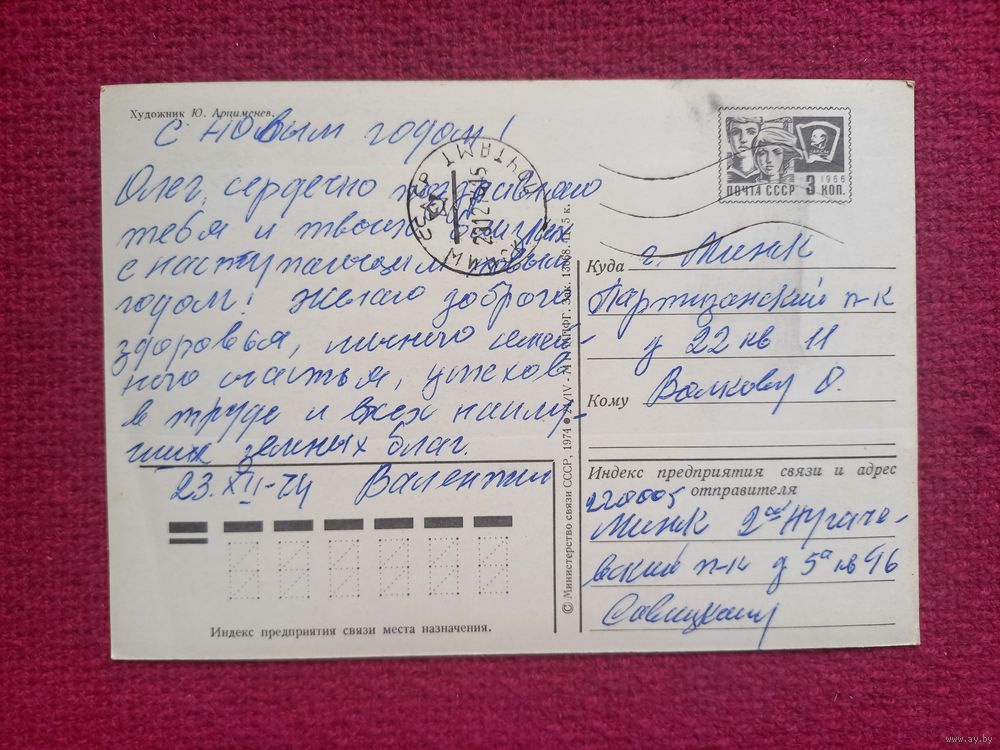 Художник Ю. Арцименев.
С новым годом!
Олег, сердечно поздравляю
тебя и твоих близких
с наступающим новым
годом! Желаю доброго
здоровья, личного семей-
ного счастья, успехов
в труде и всех наилу-
чших земных благ.
23.XII-74 Валентин
Индекс предприятия связи места назначения.
© Министерство связи СССР, 1974
5 к.
ПОЧТАМТ
ПОЧТА СССР 3 КОП.
1966
Куда г. Минск
Партизанский п-к
д 22 кв 11
Кому Волкову О.
Индекс предприятия связи и адрес
отправителя
220005
Минск 2ой
д 5а кв 96
www.ay.by